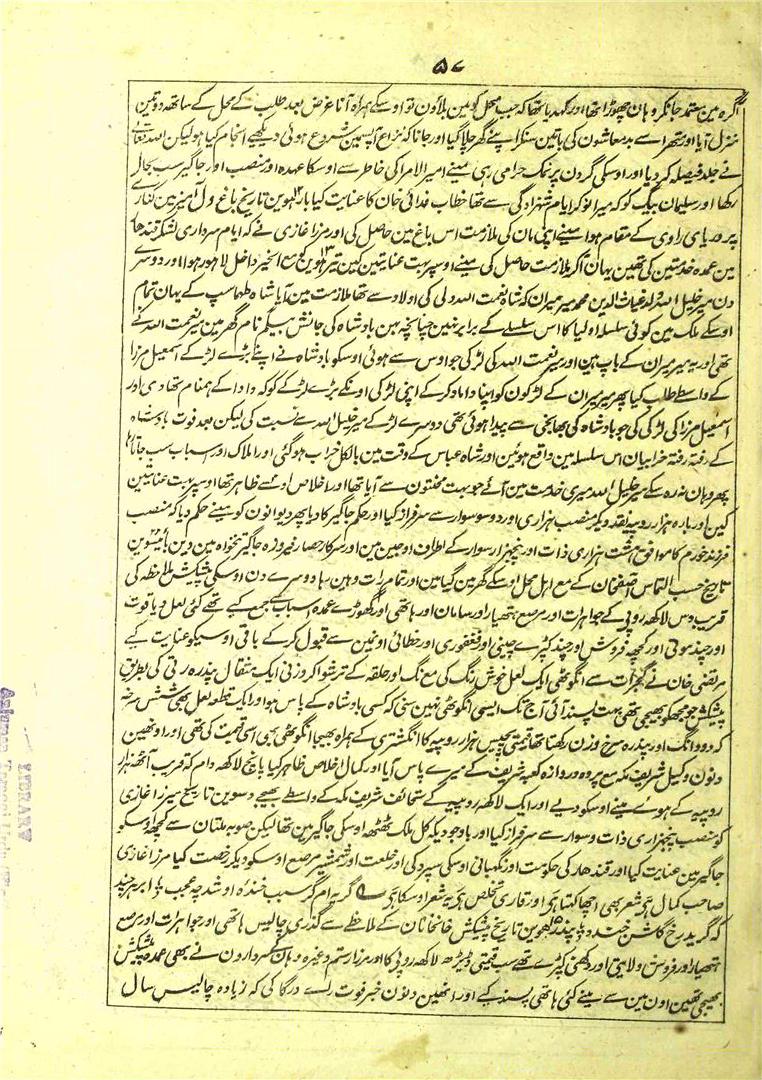 ۵۷
اگرہ مین معتمد جانکر وہان چھوڑا تھا اور کہدیا تھا کہ جب محل کو مین بلاؤن تو اوسکے ہمراہ آنا غرض بعد طلب کے محل کے ساتھ دو تین
منزل آیا اور متھرا سے بدمعاشون کی باتین سنکر اپنے گھر چلا گیا اور جانا کہ نزاع آپسمین شروع ہوئی دیکھیے انجام کیا ہو لیکن اللہ تعالی
نے جلد فیصلہ کر دیا اور اوسکی گردن پر نمک حرامی رہی مینے امیر الامرا کی خاطر سے اوسکا عہدہ اور منصب اور جاگیر سب بحال
رکھا اور سلیمان بیگ کو کہ میرا نوکر ایام شہزادگی سے تھا خطاب فدائی خان کا عنایت کیا بارہوین تاریخ باغ دل آمیز مین کنارے
پر دریای راوی کے مقام ہوا مینے اپنی مان کی ملازمت اس باغ مین حاصل کی اور مرزا غازی نے کہ ایام سرداری لشکر قندھار
مین عمدہ خدمتین کی تھین یہان آکر ملازمت حاصل کی مینے اوسپر بہت عنایتین کین تیرہوین کو مع الخیر داخل لاہور ہوا اور دوسرے
دن میر خلیل اللہ ولد غیاث الدین محمد میر میران کہ شاہ نعمت اللہ ولی کی اولاد سے تھا ملازمت مین آیا شاہ طہماسپ کے یہان تمام
اوسکے ملک مین کوئی سلسلہ اولیا کا اس سلسلے کے برابر نہین چنانچہ بہن بادشاہ کی جانش بیگم نام گھر مین میر نعمت اللہ کے
تھی اور یہ میر میران کے باپ ہین اور میر نعمت اللہ کی لڑکی جو اوس سے ہوئی اوسکو بادشاہ نے اپنے بڑے لڑکے اسمعیل مرزا
کے واسطے طلب کیا پھر میر میران کے لڑکون کو اپنا داماد کر کے اپنی لڑکی اونکے بڑے لڑکے کو کہ دادا کے ہمنام تھا دی اور
اسمعیل مرزا کی لڑکی کی جو بادشاہ کی بھانجی سے پیدا ہوئی تھی دوسرے لڑکے میر خلیل اللہ سے نسبت کی لیکن بعد فوت بادشاہ
کے رفتہ رفتہ خرابیان اس سلسلہ مین واقع ہوئین اور شاہ عباس کے وقت مین بالکل خراب ہو گئی اور املاک اور اسباب سب جاتا رہا
پھر وہان نہ رہ سکے میر خلیل اللہ میری خدمت مین آئے جو بہت محنتون سے آیا تھا اور اخلاص اوسے ظاہر تھا اوسپر بہت عنایتین
کین اور بارہ ہزار روپیہ نقد دیکر منصب ہزاری اور دو سو سوار سے سرفراز کیا اور حکم جاگیر کا دیا پھر دیوانون کو مینے حکم دیا کہ منصب
فرزند خورم کا موافق ہشت ہزاری ذات اور پنجہزار سوار کے اطراف اوجین مین اور سرکار حصار فیروزہ جاگیر تنخواہ مین دین بائیسوین
تاریخ حسب التماس آصفخان کے مع اہل محل اوسکے گھر مین گیا مین اور تمام رات وہین رہا دوسرے دن اوسکی پیشکش ملاحظہ کی
قریب دس لاکھہ روپے کے جواہرات اور مرصع ہتھیار اور سامان اور ہاتھی اور گھوڑے عمدہ اسباب جمع کیے تھے کئی لعل و یاقوت
اور چند موتی اور کچھہ فروش اور چند کپڑے چینی اور فغفوری اور خطائی اونمین سے قبول کر کے باقی اوسیکو عنایت کیے
مرتضی خان نے گجرات سے انگوٹھی ایک لعل خوش رنگ کی مع نگ اور حلقہ کے ترشوا کر وزنی ایک مثقال پندرہ رتی کی بطریق
پیشکش جو مجھکو بھیجی تھی بہت پسند آئی آج تک ایسی انگوٹھی نہین سنی کہ کسی بادشاہ کے پاس ہو اور ایک قطعہ لعل بھی شش سرخہ
کہ دو دانگ اور پندرہ سرخ وزن رکھتا تھا قیمتی پچیس ہزار روپیہ کا انگشتری کے ہمراہ بھیجا انگوٹھی بھی اسی قیمت کی تھی اور اونھین
دنون وکیل شریف مکہ مع پردہ دروازہ کعبہ شریف کے میرے پاس آیا اور کمال اخلاص ظاہر کیا پانچ لاکھہ دام کہ قریب آٹھہ ہزار
روپیہ کے ہوئے مینے اوسکو دیے اور ایک لاکھہ روپیہ کے تحائف شریف مکہ کے واسطے بھیجے دسوین تاریخ میرزا غازی
کو منصب پنجہزاری ذات و سوار سے سرفراز کیا اور باوجودیکہ کل ملک ٹھٹھہ اوسکی جاگیر مین تھا لیکن صوبہ ملتان سے کچھہ اوسکو
جاگیر مین عنایت کیا اور قندھار کی حکومت اور نگہبانی اوسکی سپرد کی اور خلعت اور شمشیر مرصع اوسکو دیکر رخصت کیا مرزا غازی
صاحب کمال ہی شعر بھی اچھا کہتا ہی اور قاری تخلص ہی یہ شعر اوسکا ہی ؎ گریہ ام گر سبب خندہ او شد چہ عجب ؞ ابر ہر چند
کہ گرید رخ گلشن خندد ؞ پندرہوین تاریخ پیشکش خانخانان کے ملاحظے سے گذری چالیس ہاتھی اور جواہرات اور مرصع
ہتھیار اور فروش ولایتی اور دکھنی کپڑے تھے سب قیمتی ڈیڑھ لاکھہ روپے کا اور مرزا رستم وغیرہ وہانکے سردارون نے بھی عمدہ پیشکش
بھیجی تھین اون مین سے مینے کئی ہاتھی پسند کیے اور انھین دنون خبر فوت راے درگا کی کہ زیادہ چالیس سال
LIBRARY